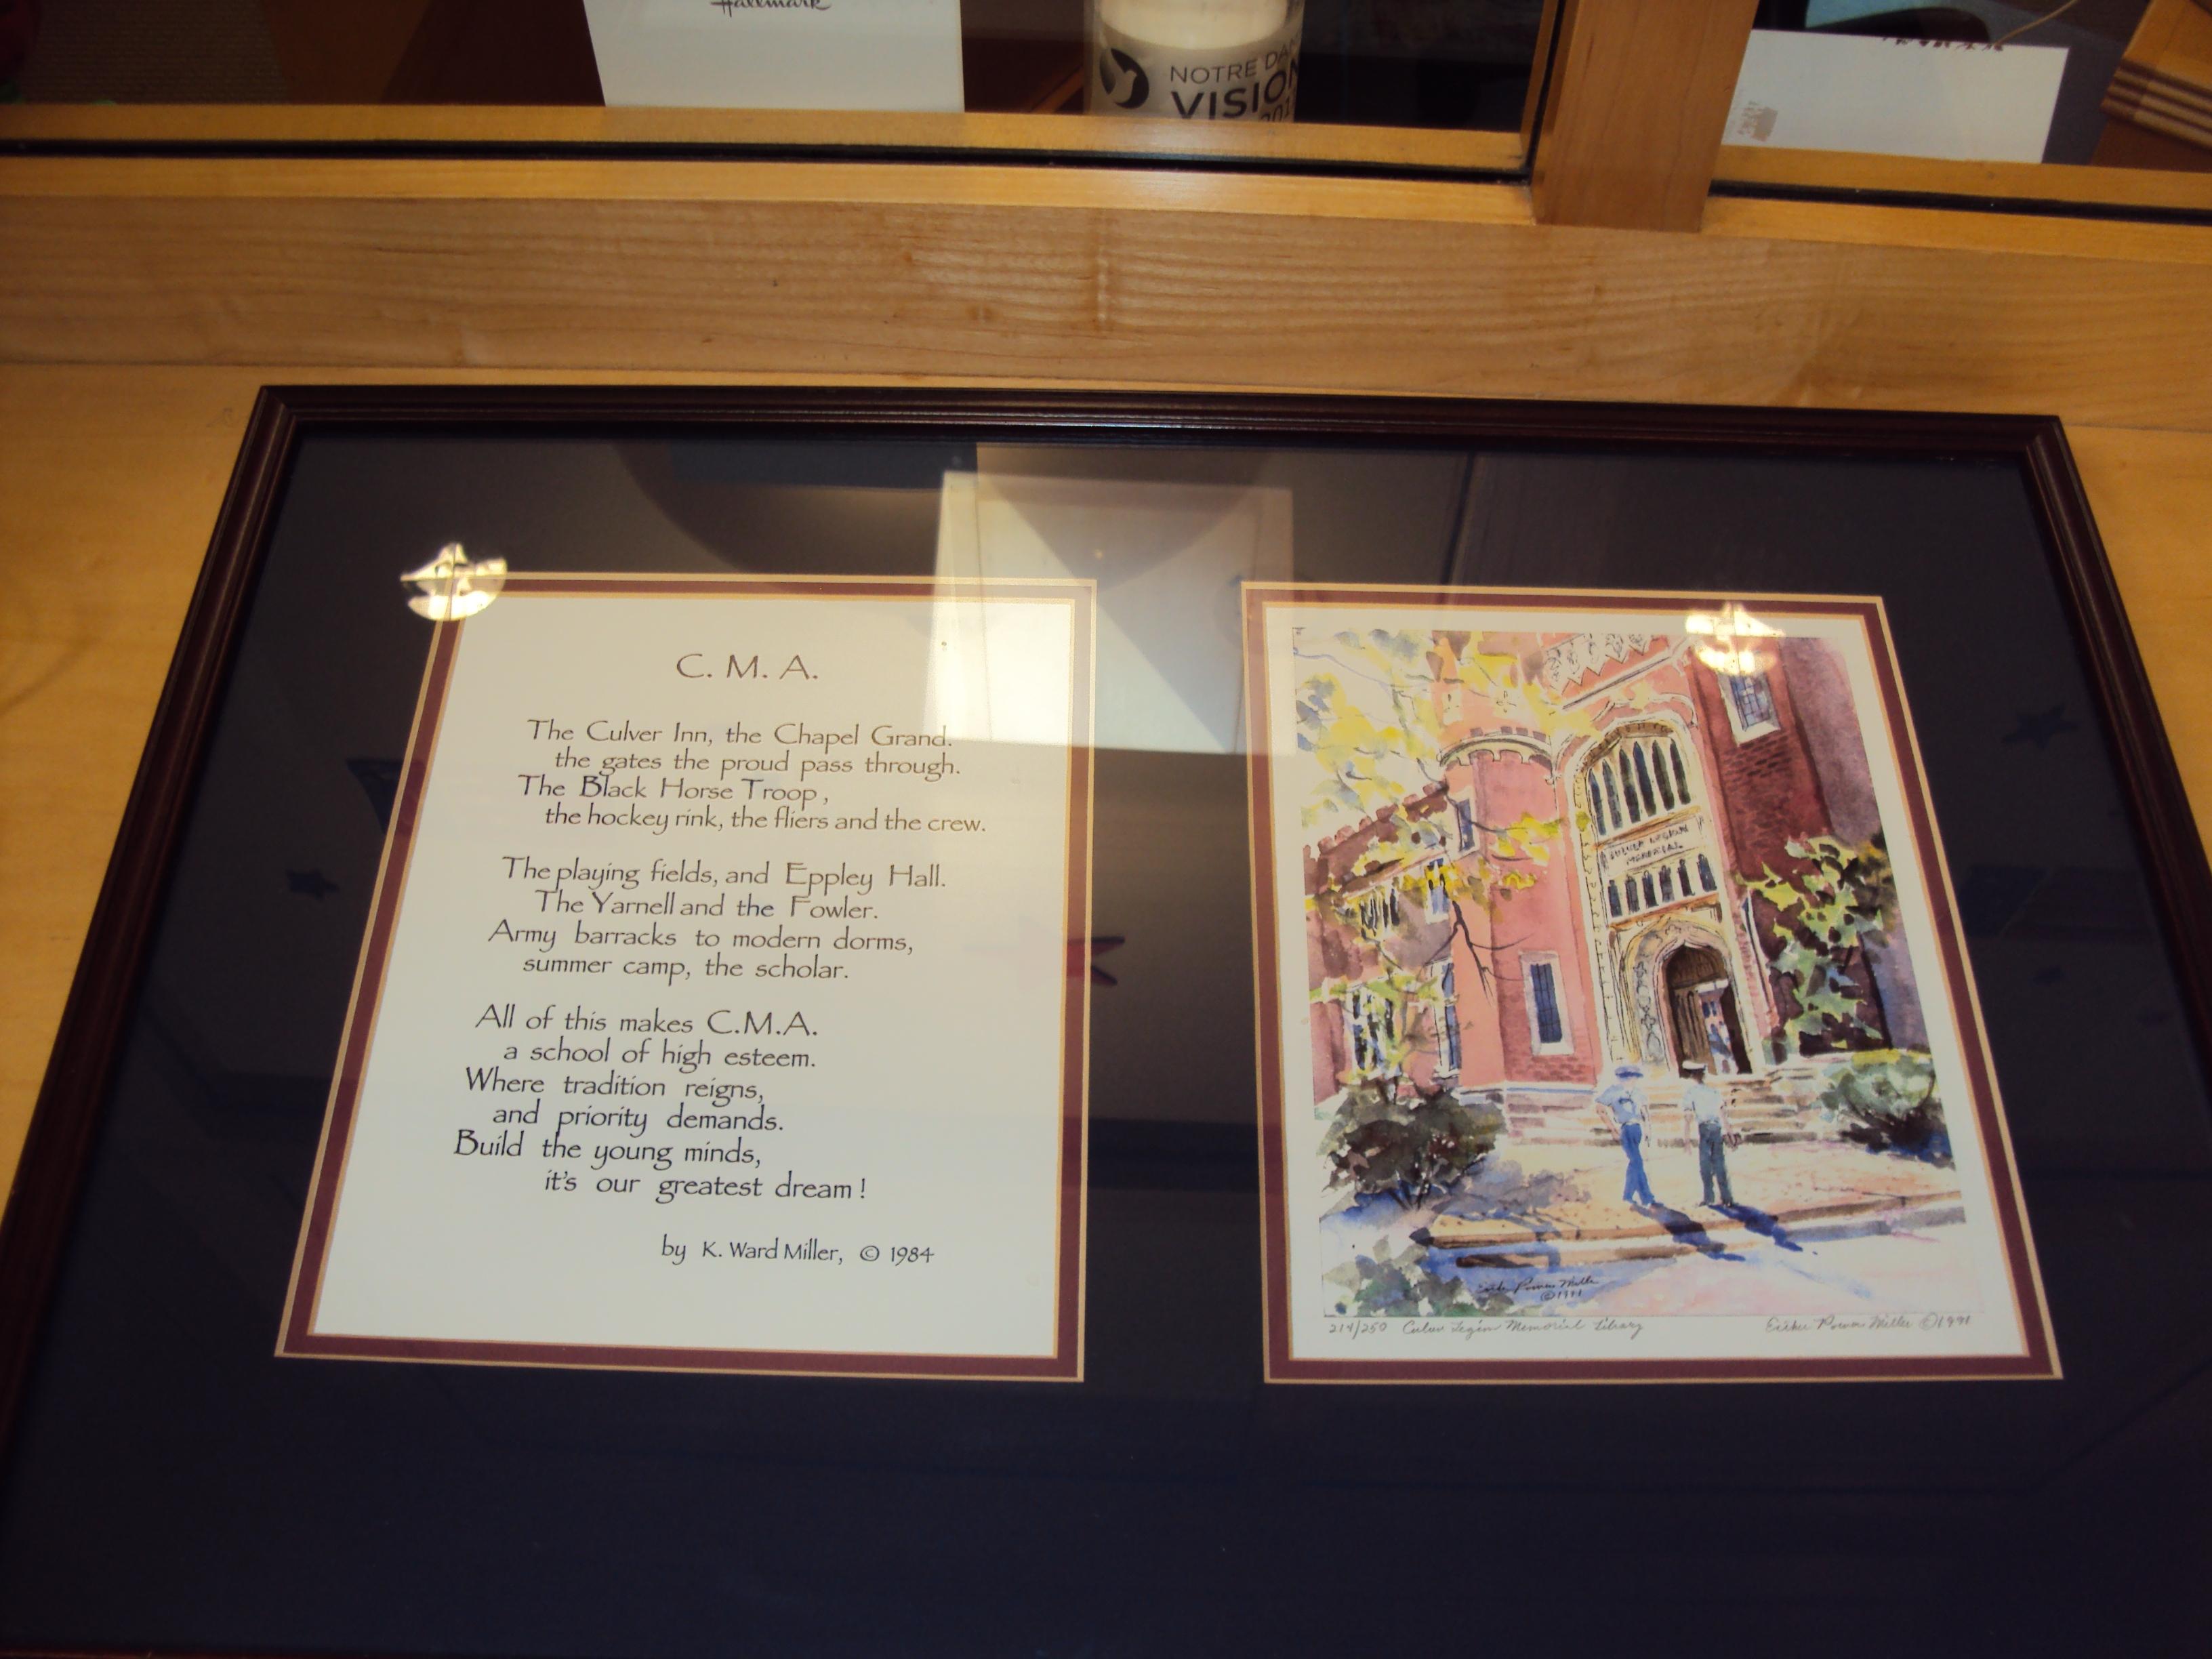 Hallmark
NOTRE DA
VISION
201
C. M. A.
The Culver Inn, the Chapel Grand.
the gates the proud pass through.
The Black Horse Troop,
the hockey rink, the fliers and the crew.
The playing fields, and Eppley Hall.
The Yarnell and the Fowler.
Army barracks to modern dorms,
summer camp, the scholar.
All of this makes C.M.A.
a school of high esteem.
Where tradition reigns,
and priority demands.
Build the young minds,
it's our greatest dream!
by K. Ward Miller, © 1984
CULVER LEGION
MEMORIAL
Miller
©1991
214/250 Culver Legion Memorial Library
Miller ©1991